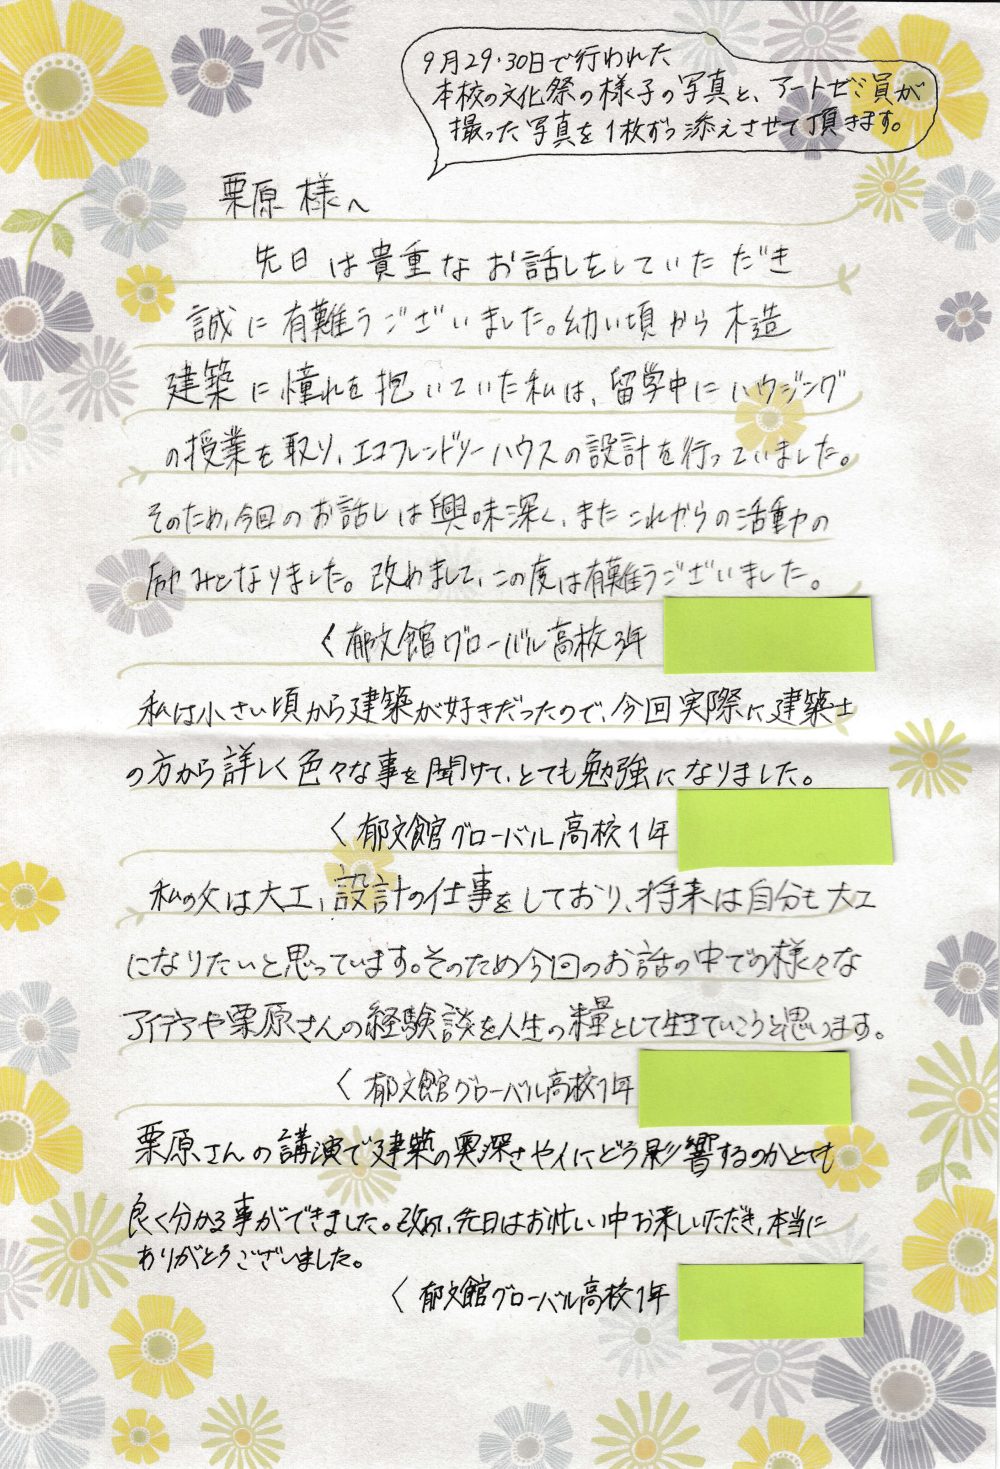 9月29・30日で行われた
本校の文化祭の様子の写真と、アートゼミ員が
撮った写真を1枚ずつ添えさせて頂きます。
栗原様へ
先日は貴重なお話しをしていただき
誠に有難うございました。幼い頃から木造
建築に憧れを抱いていた私は、留学中にハウジング
の授業を取り、エコフレンドリーハウスの設計を行っていました。
そのため、今回のお話しは興味深く、またこれからの活動の
励みとなりました。改めまして、この度は有難うございました。
く郁文館グローバル高校3年
私は小さい頃から建築が好きだったので、今回実際に建築士
の方から詳しく色々な事を聞けて、とても勉強になりました。
く郁文館グローバル高校1年
私の父は大工、設計の仕事をしており、将来は自分も大工
になりたいと思っています。そのため今回のお話の中での様々な
アイデアや栗原さんの経験談を人生の糧として生きていこうと思います。
く郁文館グローバル高校1年
栗原さんの講演で建築の奥深さや人にどう影響するのかとても
良く分かる事ができました。改め、先日はお忙しい中お来しいただき、本当に
ありがとうございました。
く郁文館グローバル高校1年